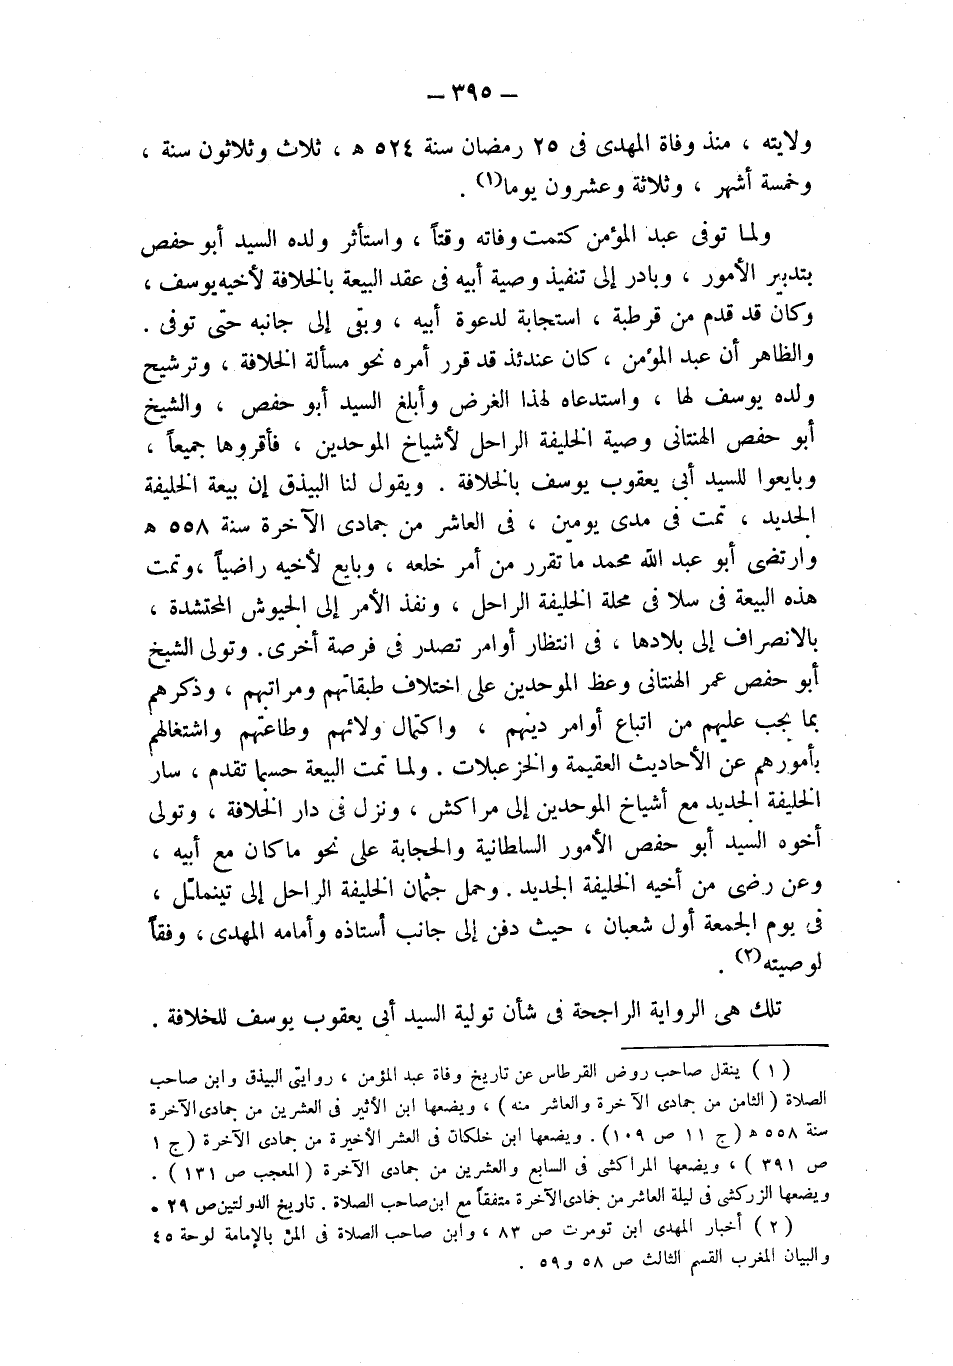 — ٣٩٥ —
ولايته ، منذ وفاة المهدى فى ٢٥ رمضان سنة ٥٢٤ ه ، ثلاث وثلاثون سنة ،
وخمسة أشهر ، وثلاثة وعشرون يوما(١) .
ولما توفى عبد المؤمن كتمت وفاته وقتاً ، واستأثر ولده السيد أبو حفص
بتدبير الأمور ، وبادر إلى تنفيذ وصية أبيه فى عقد البيعة بالخلافة لأخيه يوسف ،
وكان قد قدم من قرطبة ، استجابة لدعوة أبيه ، وبقى إلى جانبه حتى توفى .
والظاهر أن عبد المؤمن ، كان عندئذ قد قرر أمره نحو مسألة الخلافة ، وترشيح
ولده يوسف لها ، واستدعاه لهذا الغرض وأبلغ السيد أبو حفص ، والشيخ
أبو حفص الهنتانى وصية الخليفة الراحل لأشياخ الموحدين ، فأقروها جميعاً ،
وبايعوا للسيد أبى يعقوب يوسف بالخلافة . ويقول لنا البيذق إن بيعة الخليفة
الجديد ، تمت فى مدى يومين ، فى العاشر من جمادى الآخرة سنة ٥٥٨ ه
وارتضى أبو عبد الله محمد ما تقرر من أمر خلعه ، وبايع لأخيه راضياً ، وتمت
هذه البيعة فى سلا فى محلة الخليفة الراحل ، ونفذ الأمر إلى الجيوش المحتشدة ،
بالانصراف إلى بلادها ، فى انتظار أوامر تصدر فى فرصة أخرى . وتولى الشيخ
أبو حفص عمر الهنتانى وعظ الموحدين على اختلاف طبقاتهم ومراتبهم ، وذكرهم
بما يجب عليهم من اتباع أوامر دينهم ، واكتمال ولائهم وطاعتهم واشتغالهم
بأمورهم عن الأحاديث العقيمة والخزعبلات . ولما تمت البيعة حسبما تقدم ، سار
الخليفة الجديد مع أشياخ الموحدين إلى مراكش ، ونزل فى دار الخلافة ، وتولى
أخوه السيد أبو حفص الأمور السلطانية والحجابة على نحو ماكان مع أبيه ،
وعن رضى من أخيه الخليفة الجديد . وحمل جثمان الخليفة الراحل إلى تينملل ،
فى يوم الجمعة أول شعبان ، حيث دفن إلى جانب أستاذه وأمامه المهدى ، وفقاً
لوصيته(٢) .
تلك هى الرواية الراجحة فى شأن تولية السيد أبى يعقوب يوسف للخلافة .
( ١ ) ينقل صاحب روض القرطاس عن تاريخ وفاة عبد المؤمن ، روايتى البيذق وابن صاحب
الصلاة ( الثامن من جمادى الآخرة والعاشر منه ) ، ويضعها ابن الأثير فى العشرين من جمادى الآخرة
سنة ٥٥٨ ه ( ج ١١ ص ١٠٩ ) . ويضعها ابن خلكان فى العشر الأخيرة من جمادى الآخرة ( ج ١
ص ٣٩١ ) ، ويضعها المراكشى فى السابع والعشرين من جمادى الآخرة ( المعجب ص ١٣١ ) .
ويضعها الزركشى فى ليلة العاشر من جمادى الآخرة متفقاً مع ابن صاحب الصلاة . تاريخ الدولتين ص ٢٩ .
( ٢ ) أخبار المهدى ابن تومرت ص ٨٣ ، وابن صاحب الصلاة فى المن بالإمامة لوحة ٤٥
والبيان المغرب القسم الثالث ص ٥٨ و ٥٩ .